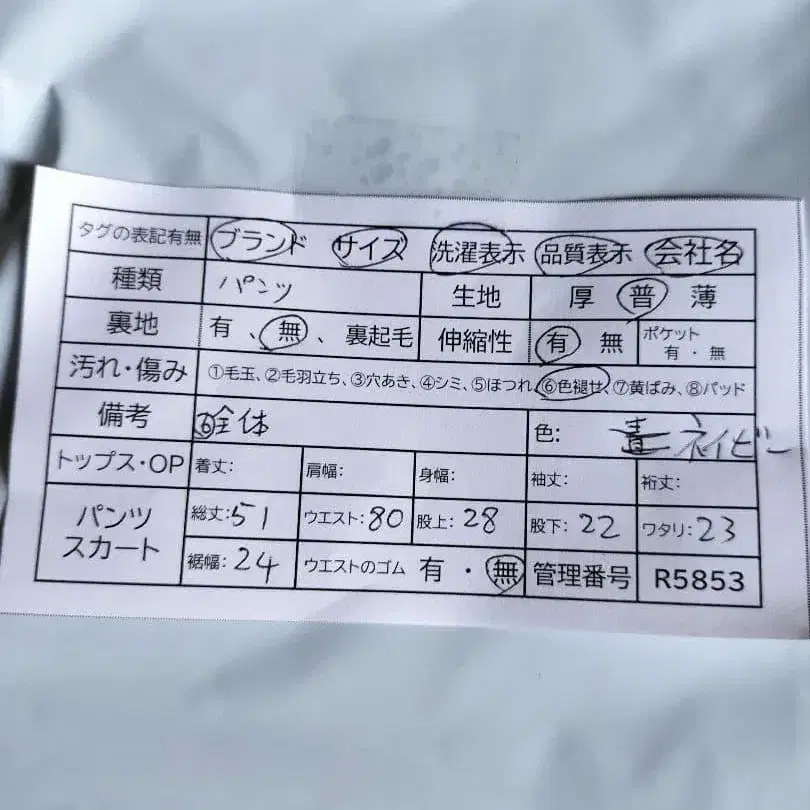 タグの表記有無 ブランド サイズ 洗濯表示 品質表示 会社名
種類 パンツ 生地 厚 普 薄
裏地 有、無、裏起毛 伸縮性 有 無 ポケット 有・無
汚れ・傷み ①毛玉、②毛羽立ち、③穴あき、④シミ、⑤ほつれ、⑥色褪せ、⑦黄ばみ、⑧パッド
備考 ⑥全体 色: 青 ネイビー
トップス・OP 着丈: 肩幅: 身幅: 袖丈: 裄丈:
パンツ スカート 総丈:51 ウエスト:80 股上:28 股下:22 ワタリ:23
裾幅:24 ウエストのゴム 有・無 管理番号 R5853